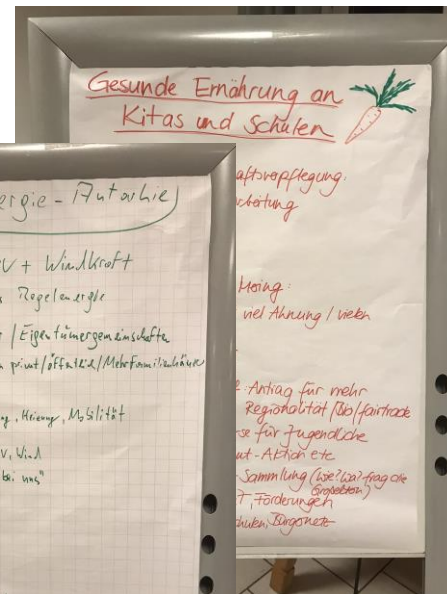 Gesunde Ernährung an
Kitas und Schulen
aftsverpflegung:
rbeitung
Meing:
viel Ahnung / vielen
: Antrag für mehr
Regionalität / Bio / fairtrade
se für Jugendliche
ut-Aktion etc
Sammlung (wie? wo? frag die
Experten)
T, Förderungen
chulen, Bürgernetz
ergie - Autarkie
V + Windkraft
Regelenergie
/ Eigentümergemeinschaften
privat / öffentlich / Mehrfamilienhäuser
ng, Heizung, Mobilität
V, Wind
bei uns"